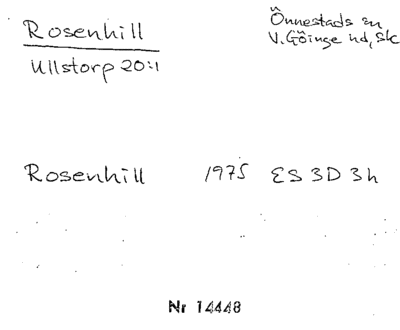 Rosenhill
Ullstorp 20:1
Önnestads sn
V. Göinge hd, Sk
Rosenhill 1975 ES 3D 3h
Nr 14448